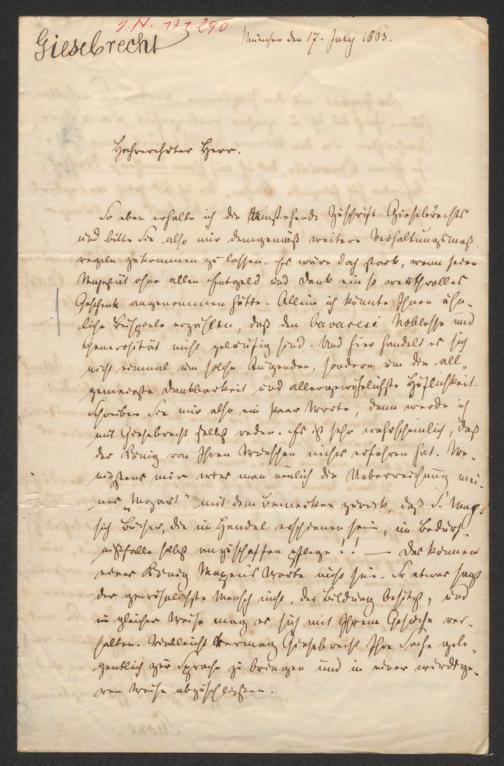 I.N. 171.290
Giesebrecht
München den 17. July 1863.
Hochverehrter Herr.
So eben erhalte ich die umstehende Zuschrift Giesebrechts
und bitte Sie also mir demgemäß weitere Verhaltungsmaß-
regeln zukommen zu lassen. Es wäre doch stark, wenn jene
Majestät ohne allen Entgeld und Dank ein so werthvolles
Geschenk angenommen hätte. Allein ich könnte Ihnen ähn-
liche Beispiele erzählen, daß den bavaresi Noblesse und
Generosität nicht geläufig sind. Und hier handelt es sich
nicht einmal um solche Tugenden, sondern um die all-
gemeinste Dankbarkeit und allergewöhnlichste Höflichkeit.
Schreiben Sie mir also ein paar Worte, dann werde ich
mit Giesebrecht selbst reden. Es ist sehr wahrscheinlich, daß
der König von Ihren Wünschen nichts erfahren hat. We-
nigstens mir wies man neulich die Ueberreichung mei-
nes "Mozart" mit dem Bemerken zurück, daß S. Maj.
sich Bücher, die im Handel erschienen sein, im Bedürf-
nißfalle selbst anzuschaffen pflege!! — Das können
eines König Maxens Worte nicht sein. So etwas sagt
der gewöhnlichste Mensch nicht, der Bildung besitzt, und
in gleicher Weise mag es sich mit Ihrem Gesuche ver-
halten. Vielleicht vermag Giesebrecht Ihre Sache gele-
gentlich zur Sprache zu bringen und in einer würdige-
ren Weise abzuschließen.